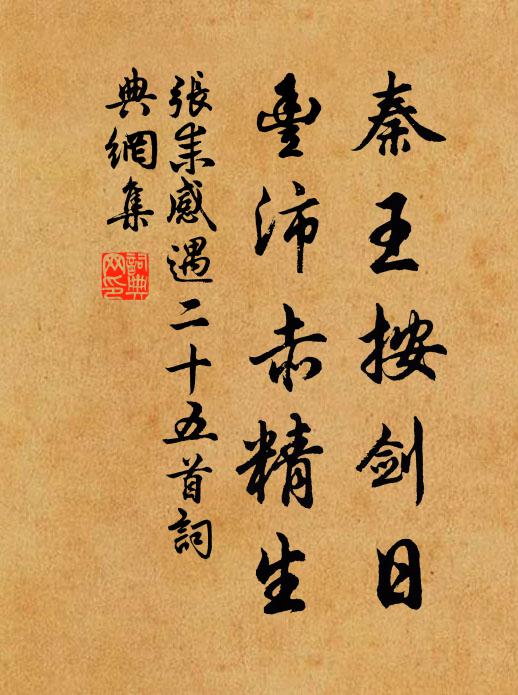 秦王按剑日
豊沛赤精生
張耒感遇二十五首詞
典網集
詞典网印